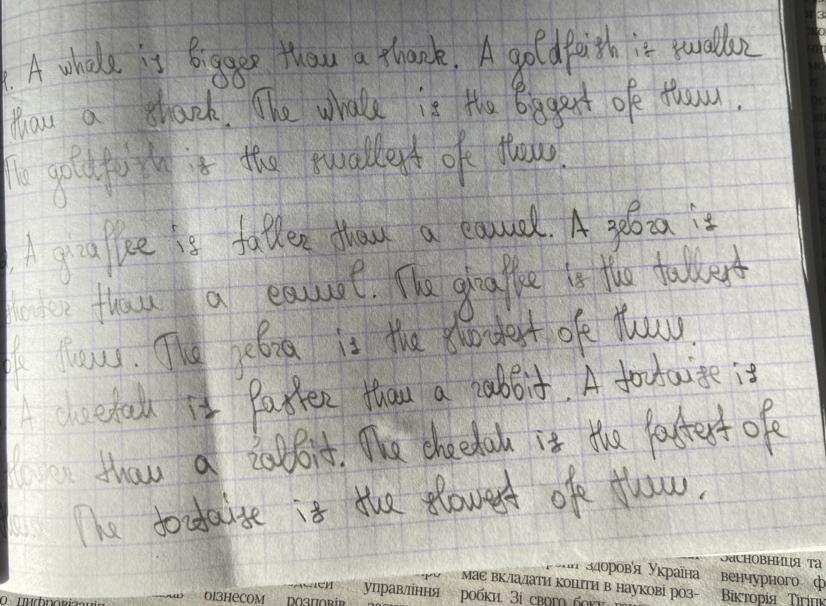 1. A whale is bigger than a shark. A goldfeish is smaller
than a shark. The whale is the biggest ofe them.
The goldfeish is the smallest ofe them.
A giraffee is taller than a camel. A zebra is
shorter than a camel. The giraffee is the tallest
ofe them. The zebra is the shortest ofe them.
A cheetah is faster than a rabbit. A tortaise is
slower than a rabbit. The cheetah is the fastest ofe
them. The tortaise is the slowest ofe them.
здоров'я Україна
має вкладати кошти в наукові роз-
робки. Зі свого боку
управління
бізнесом розповів
Засновниця та
венчурного ф
Вікторія Тігіпк